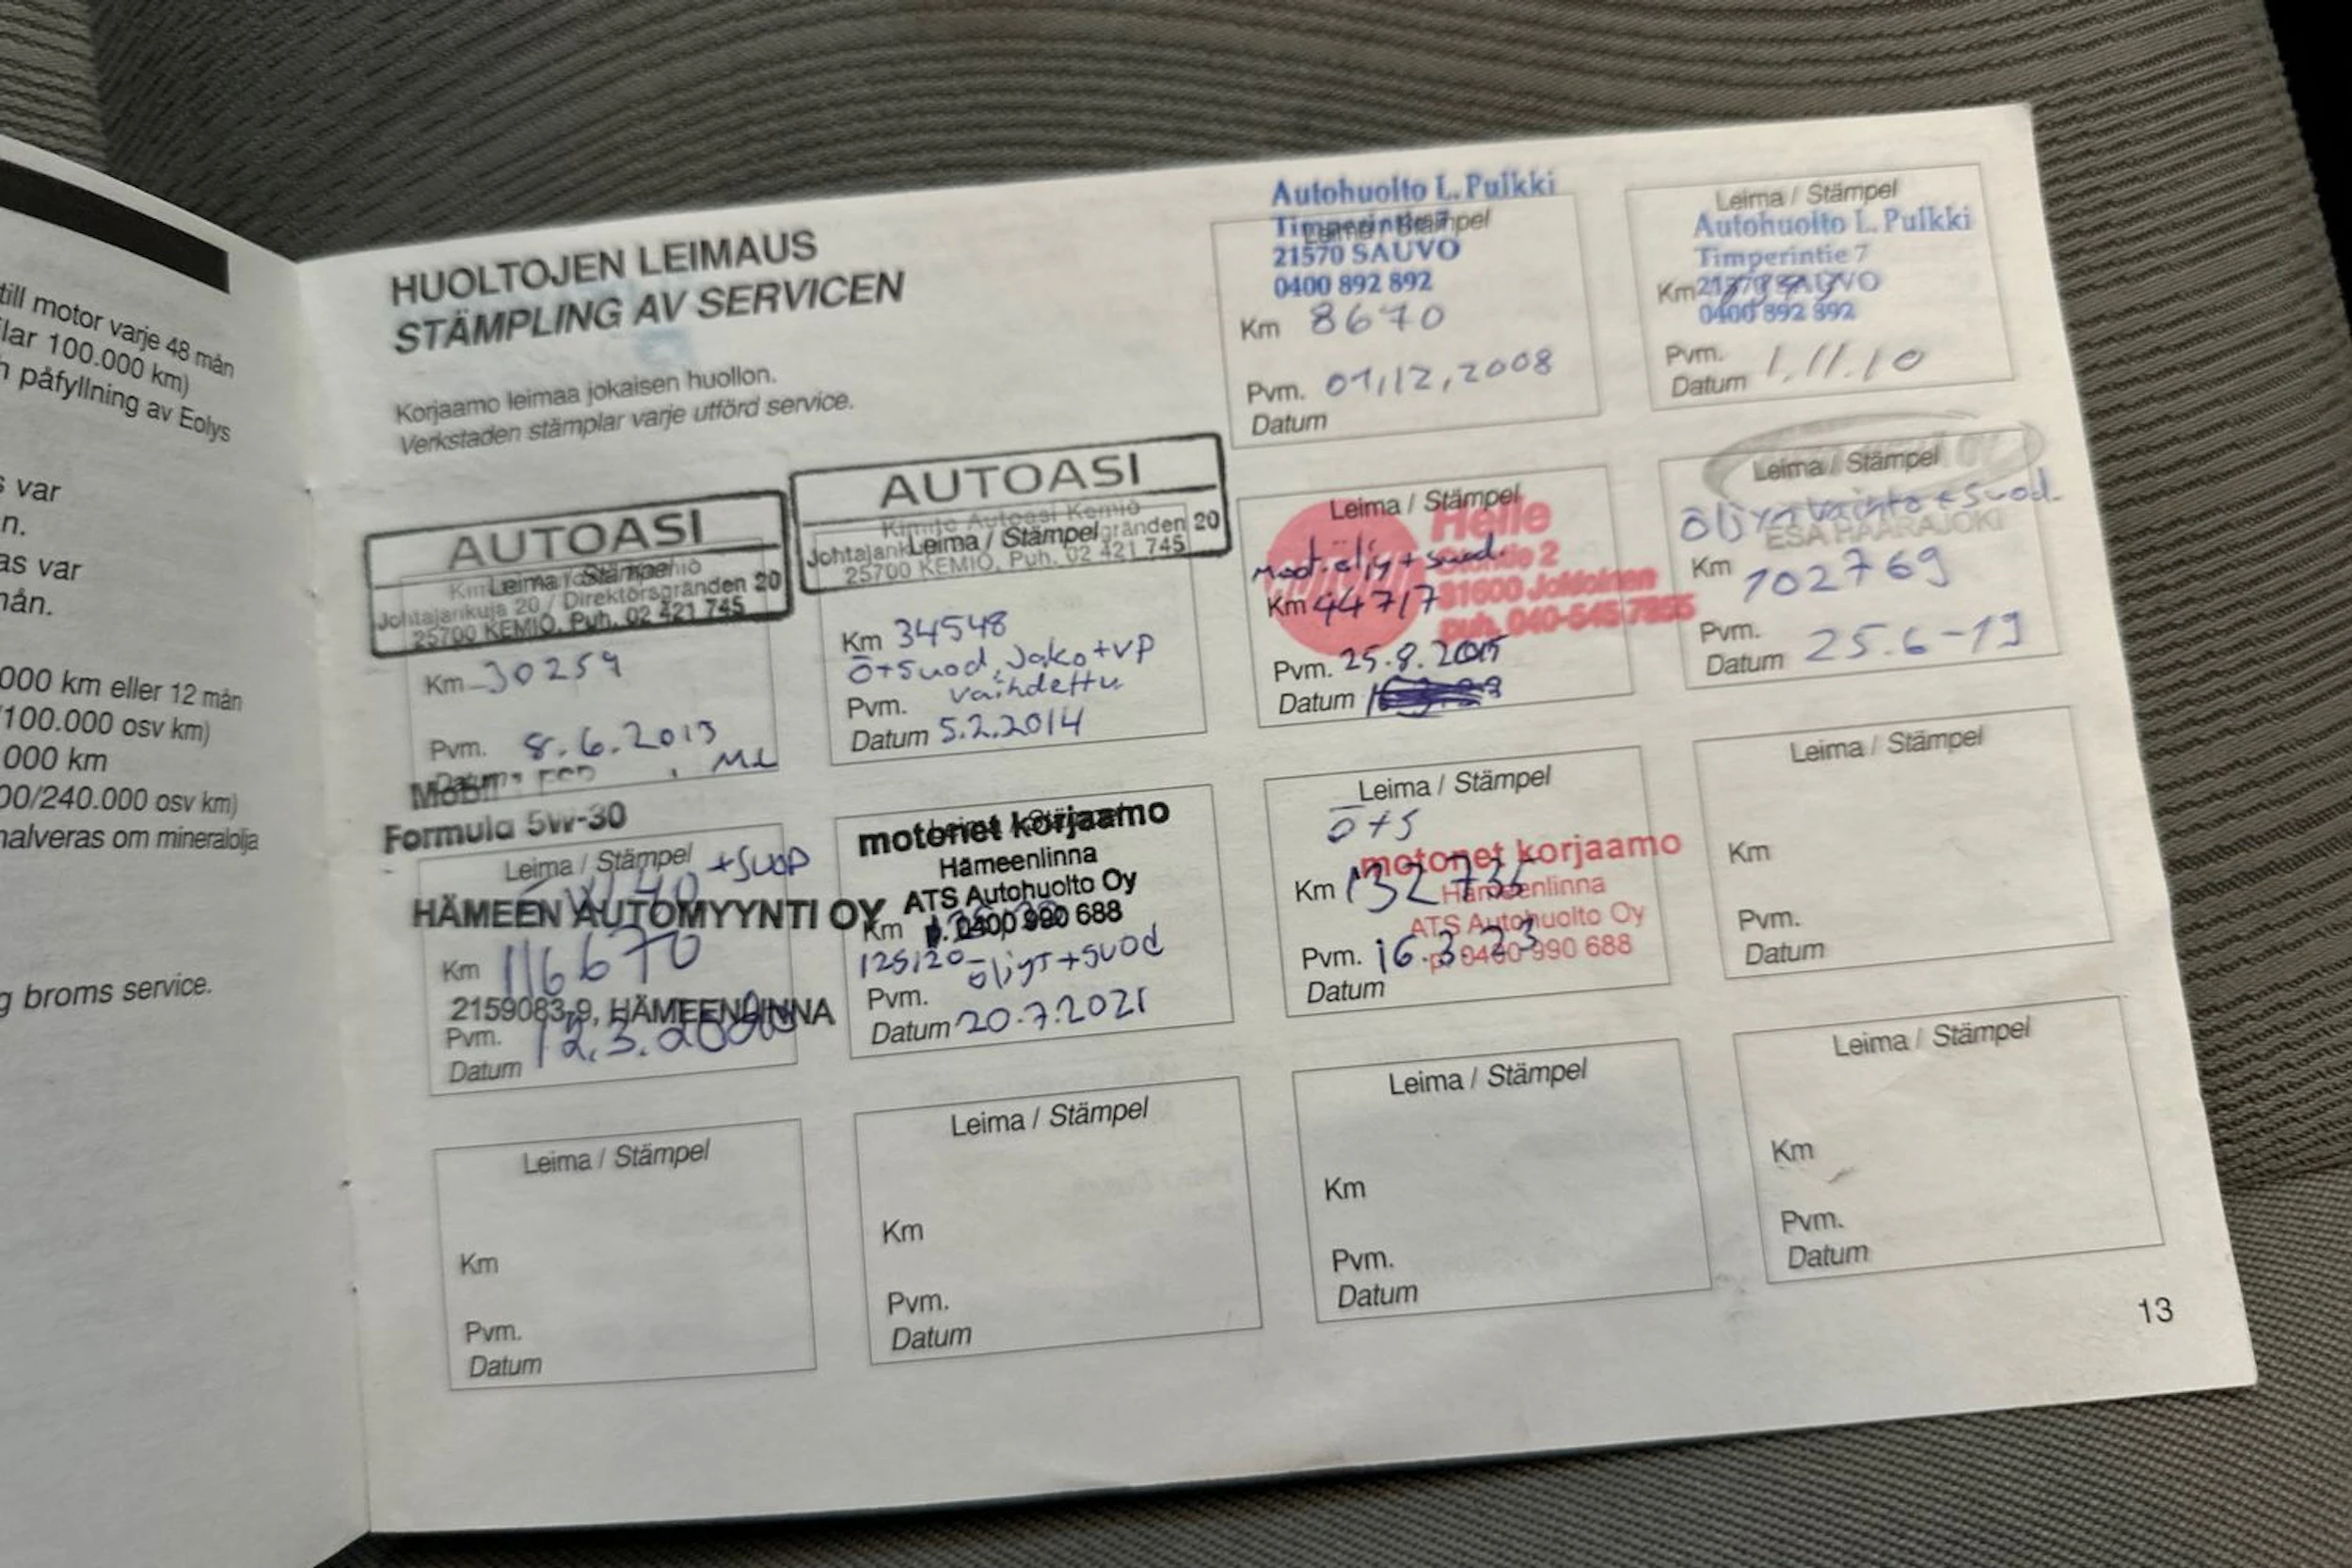 till motor varje 48 mån
lar 100.000 km)
h påfyllning av Eolys
s var
n.
as var
nån.
000 km eller 12 mån
/100.000 osv km)
000 km
00/240.000 osv km)
nalveras om mineralolja
g broms service.
HUOLTOJEN LEIMAUS
STÄMPLING AV SERVICEN
Korjaamo leimaa jokaisen huollon.
Verkstaden stämplar varje utförd service.
Autohuolto L. Pulkki
Timperintie 7
21570 SAUVO
0400 892 892
Km 8670
Pvm. 01,12,2008
Datum
Leima / Stämpel
Autohuolto L. Pulkki
Timperintie 7
Km 21570 SAUVO
0400 892 892
Pvm. 1.11.10
Datum
AUTOASI
Leima / Stämpel
Johtajankuja 20 / Direktörsgränden 20
25700 KEMIÖ, Puh. 02 421 745
Km 30259
Pvm. 8.6.2013
Datum ML
Mobil
Formula 5W-30
AUTOASI
Kimito Autoasi Kemiö
Leima / Stämpel
gränden 20
25700 KEMIÖ, Puh. 02 421 745
Km 34548
ö+suod, Jako+VP
vaihdettu
Pvm.
Datum 5.2.2014
Leima / Stämpel
Helle
moot.öljy + suod.
31600 Jokioinen
Km 44717
puh. 040-545 7855
Pvm. 25.8.2015
Datum
Leima / Stämpel
öljynvaihto + suod.
ESA HAARAJOKI
Km 102769
Pvm. 25.6-19
Datum
Leima / Stämpel +SUOD
5W40
HÄMEEN AUTOMYYNTI OY
Km 116670
2159083-9, HÄMEENLINNA
Pvm. 12.3.
Datum
motonet korjaamo
Hämeenlinna
ATS Autohuolto Oy
Km p. 0400 990 688
125120- öljyt+suod
Pvm.
Datum 20.7.2021
Leima / Stämpel
ö+s
motonet korjaamo
Km 132735
Hämeenlinna
ATS Autohuolto Oy
Pvm. 16.3.23
p. 0400 990 688
Datum
Leima / Stämpel
Km
Pvm.
Datum
Leima / Stämpel
Km
Pvm.
Datum
Leima / Stämpel
Km
Pvm.
Datum
Leima / Stämpel
Km
Pvm.
Datum
Leima / Stämpel
Km
Pvm.
Datum
13